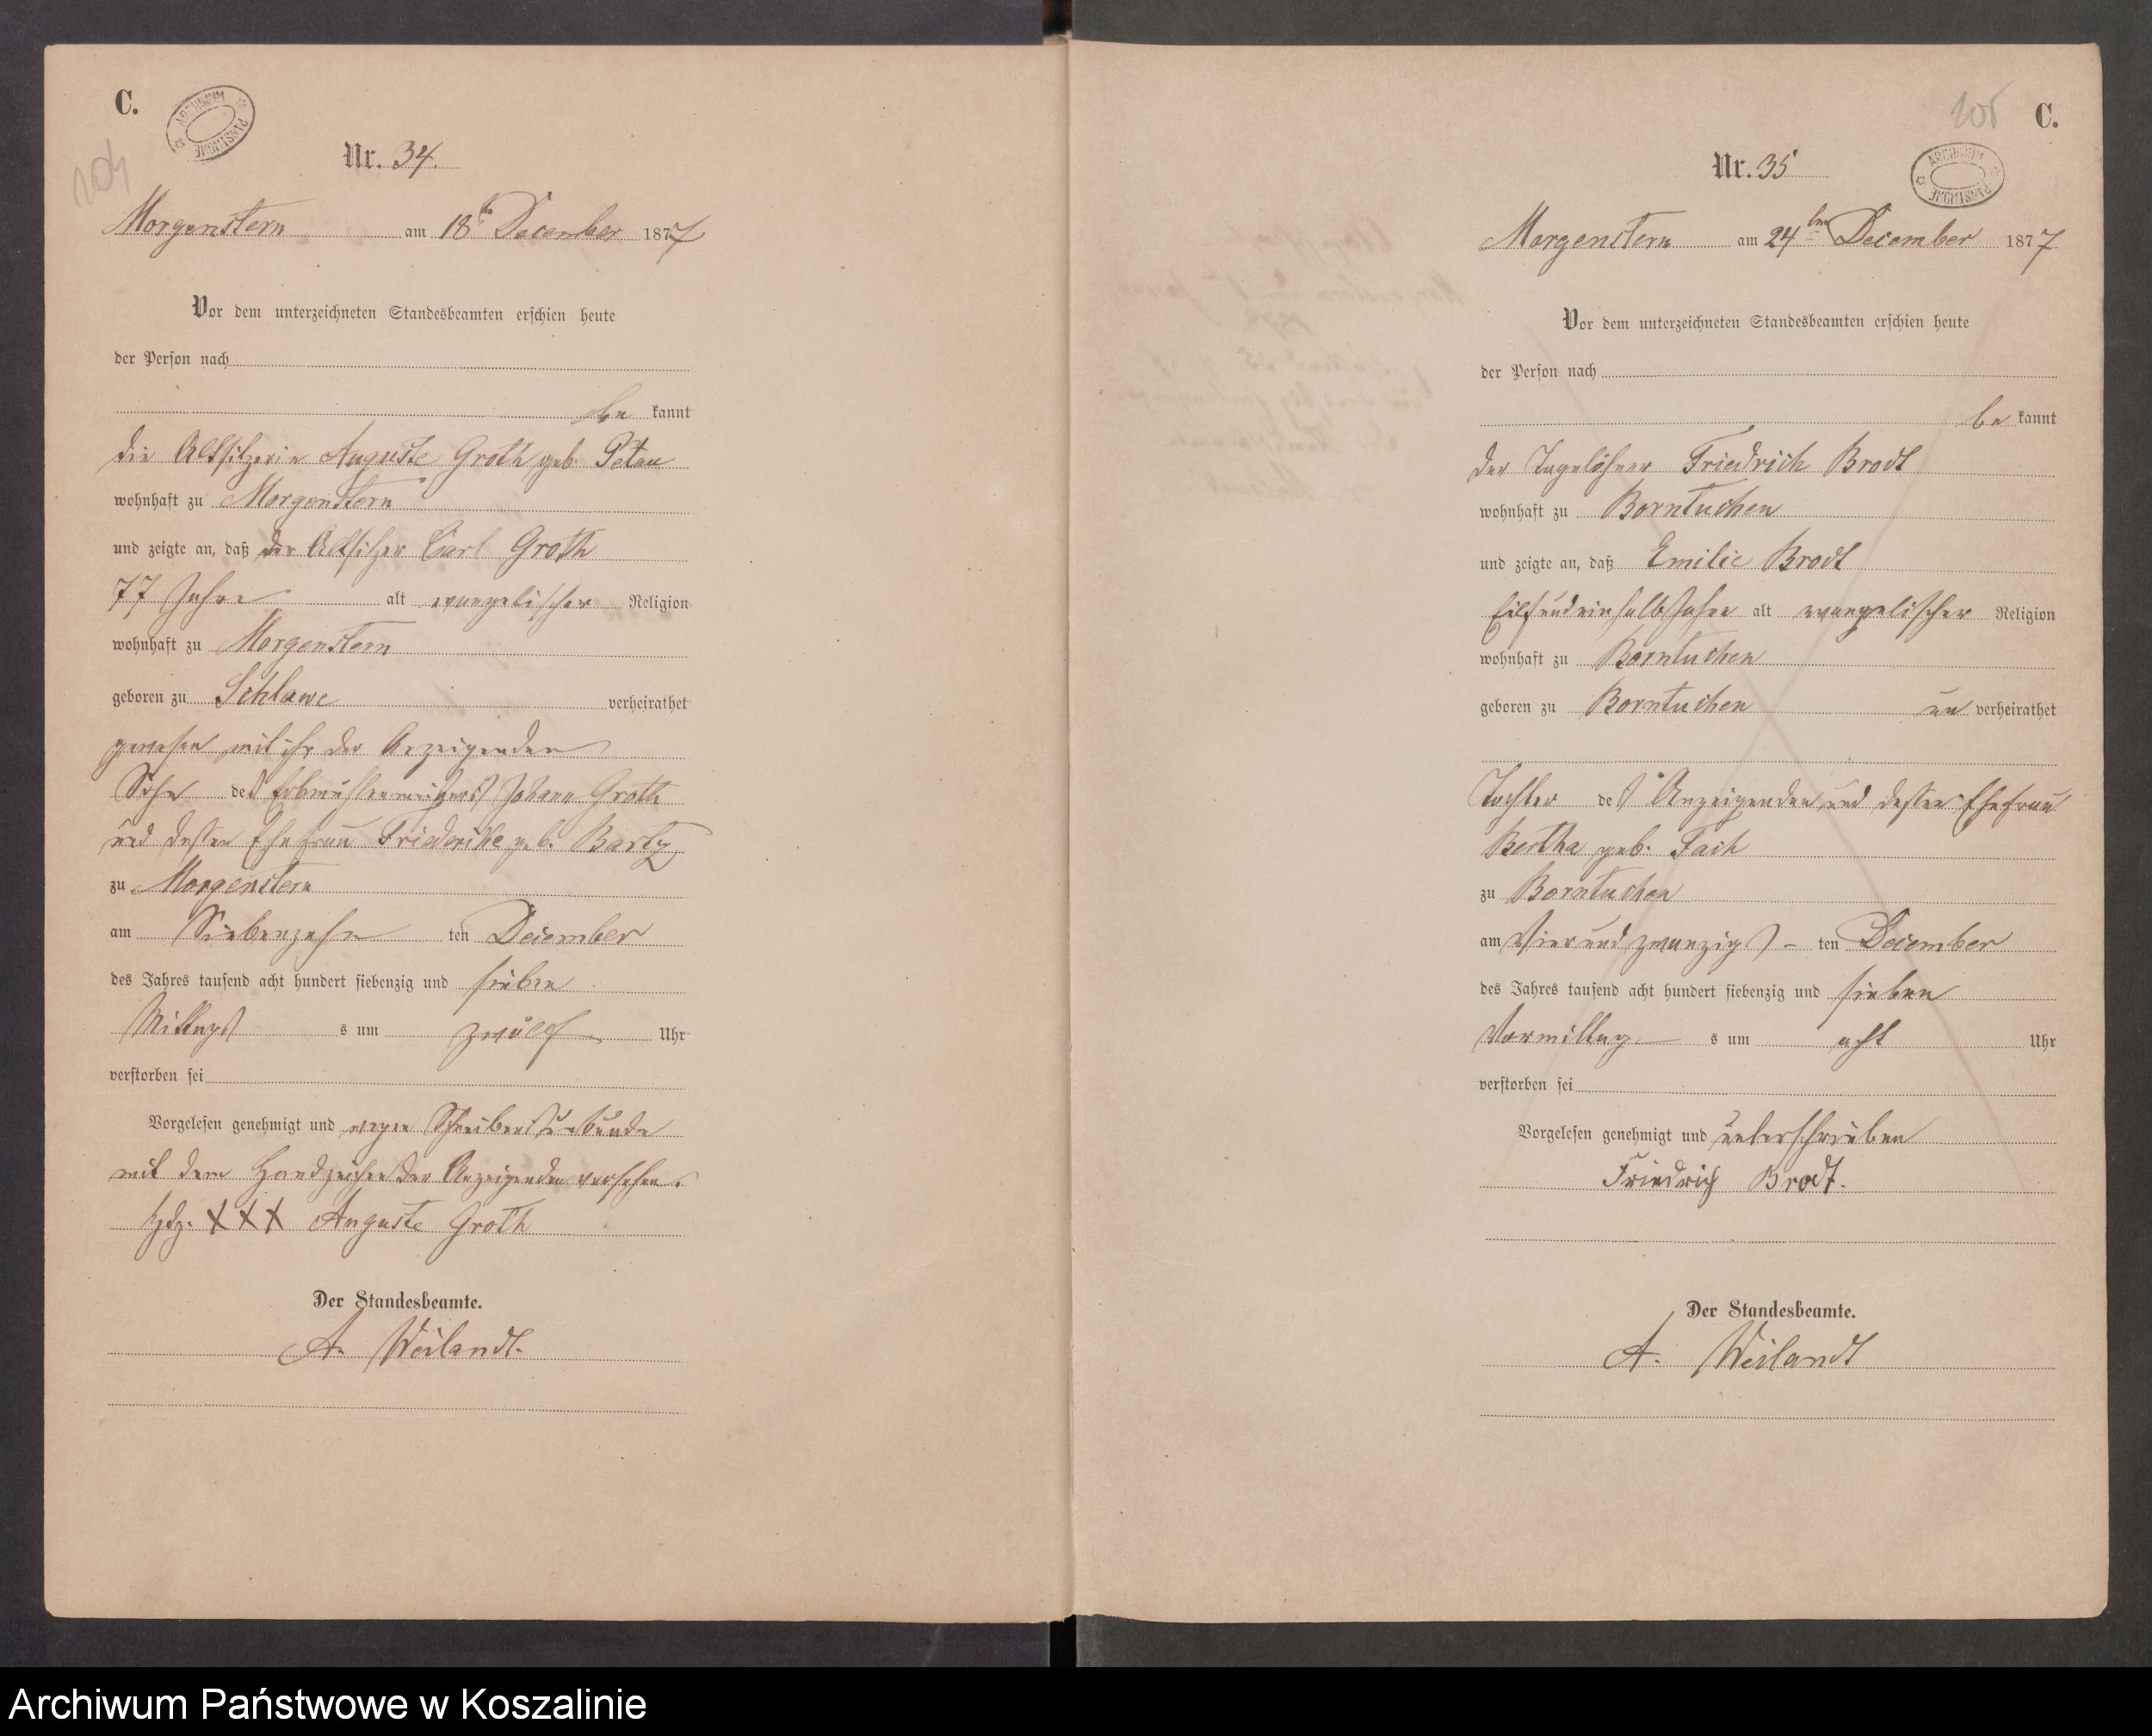 C.
ARCHIWUM PAŃSTWOWE
104
Nr. 34.
Morgenstern am 18ten December 1877
Vor dem unterzeichneten Standesbeamten erschien heute
der Person nach
be kannt
die Altsitzerin Auguste Groth geb. Petau
wohnhaft zu Morgenstern
und zeigte an, daß der Altsitzer Carl Groth
77 Jahre alt evangelischer Religion
wohnhaft zu Morgenstern
geboren zu Schlawe verheirathet
gewesen mit ihr der Anzeigenden
Sohn des Erbmühlenmeisters Johann Groth
und dessen Ehefrau Friederike geb. Bartz
zu Morgenstern
am Siebenzehn ten December
des Jahres tausend acht hundert siebenzig und sieben
Mittags s um zwölf Uhr
verstorben sei
Vorgelesen genehmigt und wegen Schreibensunkunde
mit dem Handzeichen der Anzeigenden versehen.
Hdz. XXX Auguste Groth
Der Standesbeamte.
A. Weilandt.
105
C.
ARCHIWUM PAŃSTWOWE
Nr. 35
Morgenstern am 24ten December 1877
Vor dem unterzeichneten Standesbeamten erschien heute
der Person nach
be kannt
der Tagelöhner Friedrich Brodt
wohnhaft zu Borntuchen
und zeigte an, daß Emilie Brodt
Eilfundeinhalb Jahre alt evangelischer Religion
wohnhaft zu Borntuchen
geboren zu Borntuchen un verheirathet
Tochter des Anzeigenden und dessen Ehefrau
Bertha geb. Fach
zu Borntuchen
am Vierundzwanzigs ten December
des Jahres tausend acht hundert siebenzig und sieben
Vormittag s um acht Uhr
verstorben sei
Vorgelesen genehmigt und unterschrieben
Friedrich Brodt.
Der Standesbeamte.
A. Weilandt
Archiwum Państwowe w Koszalinie